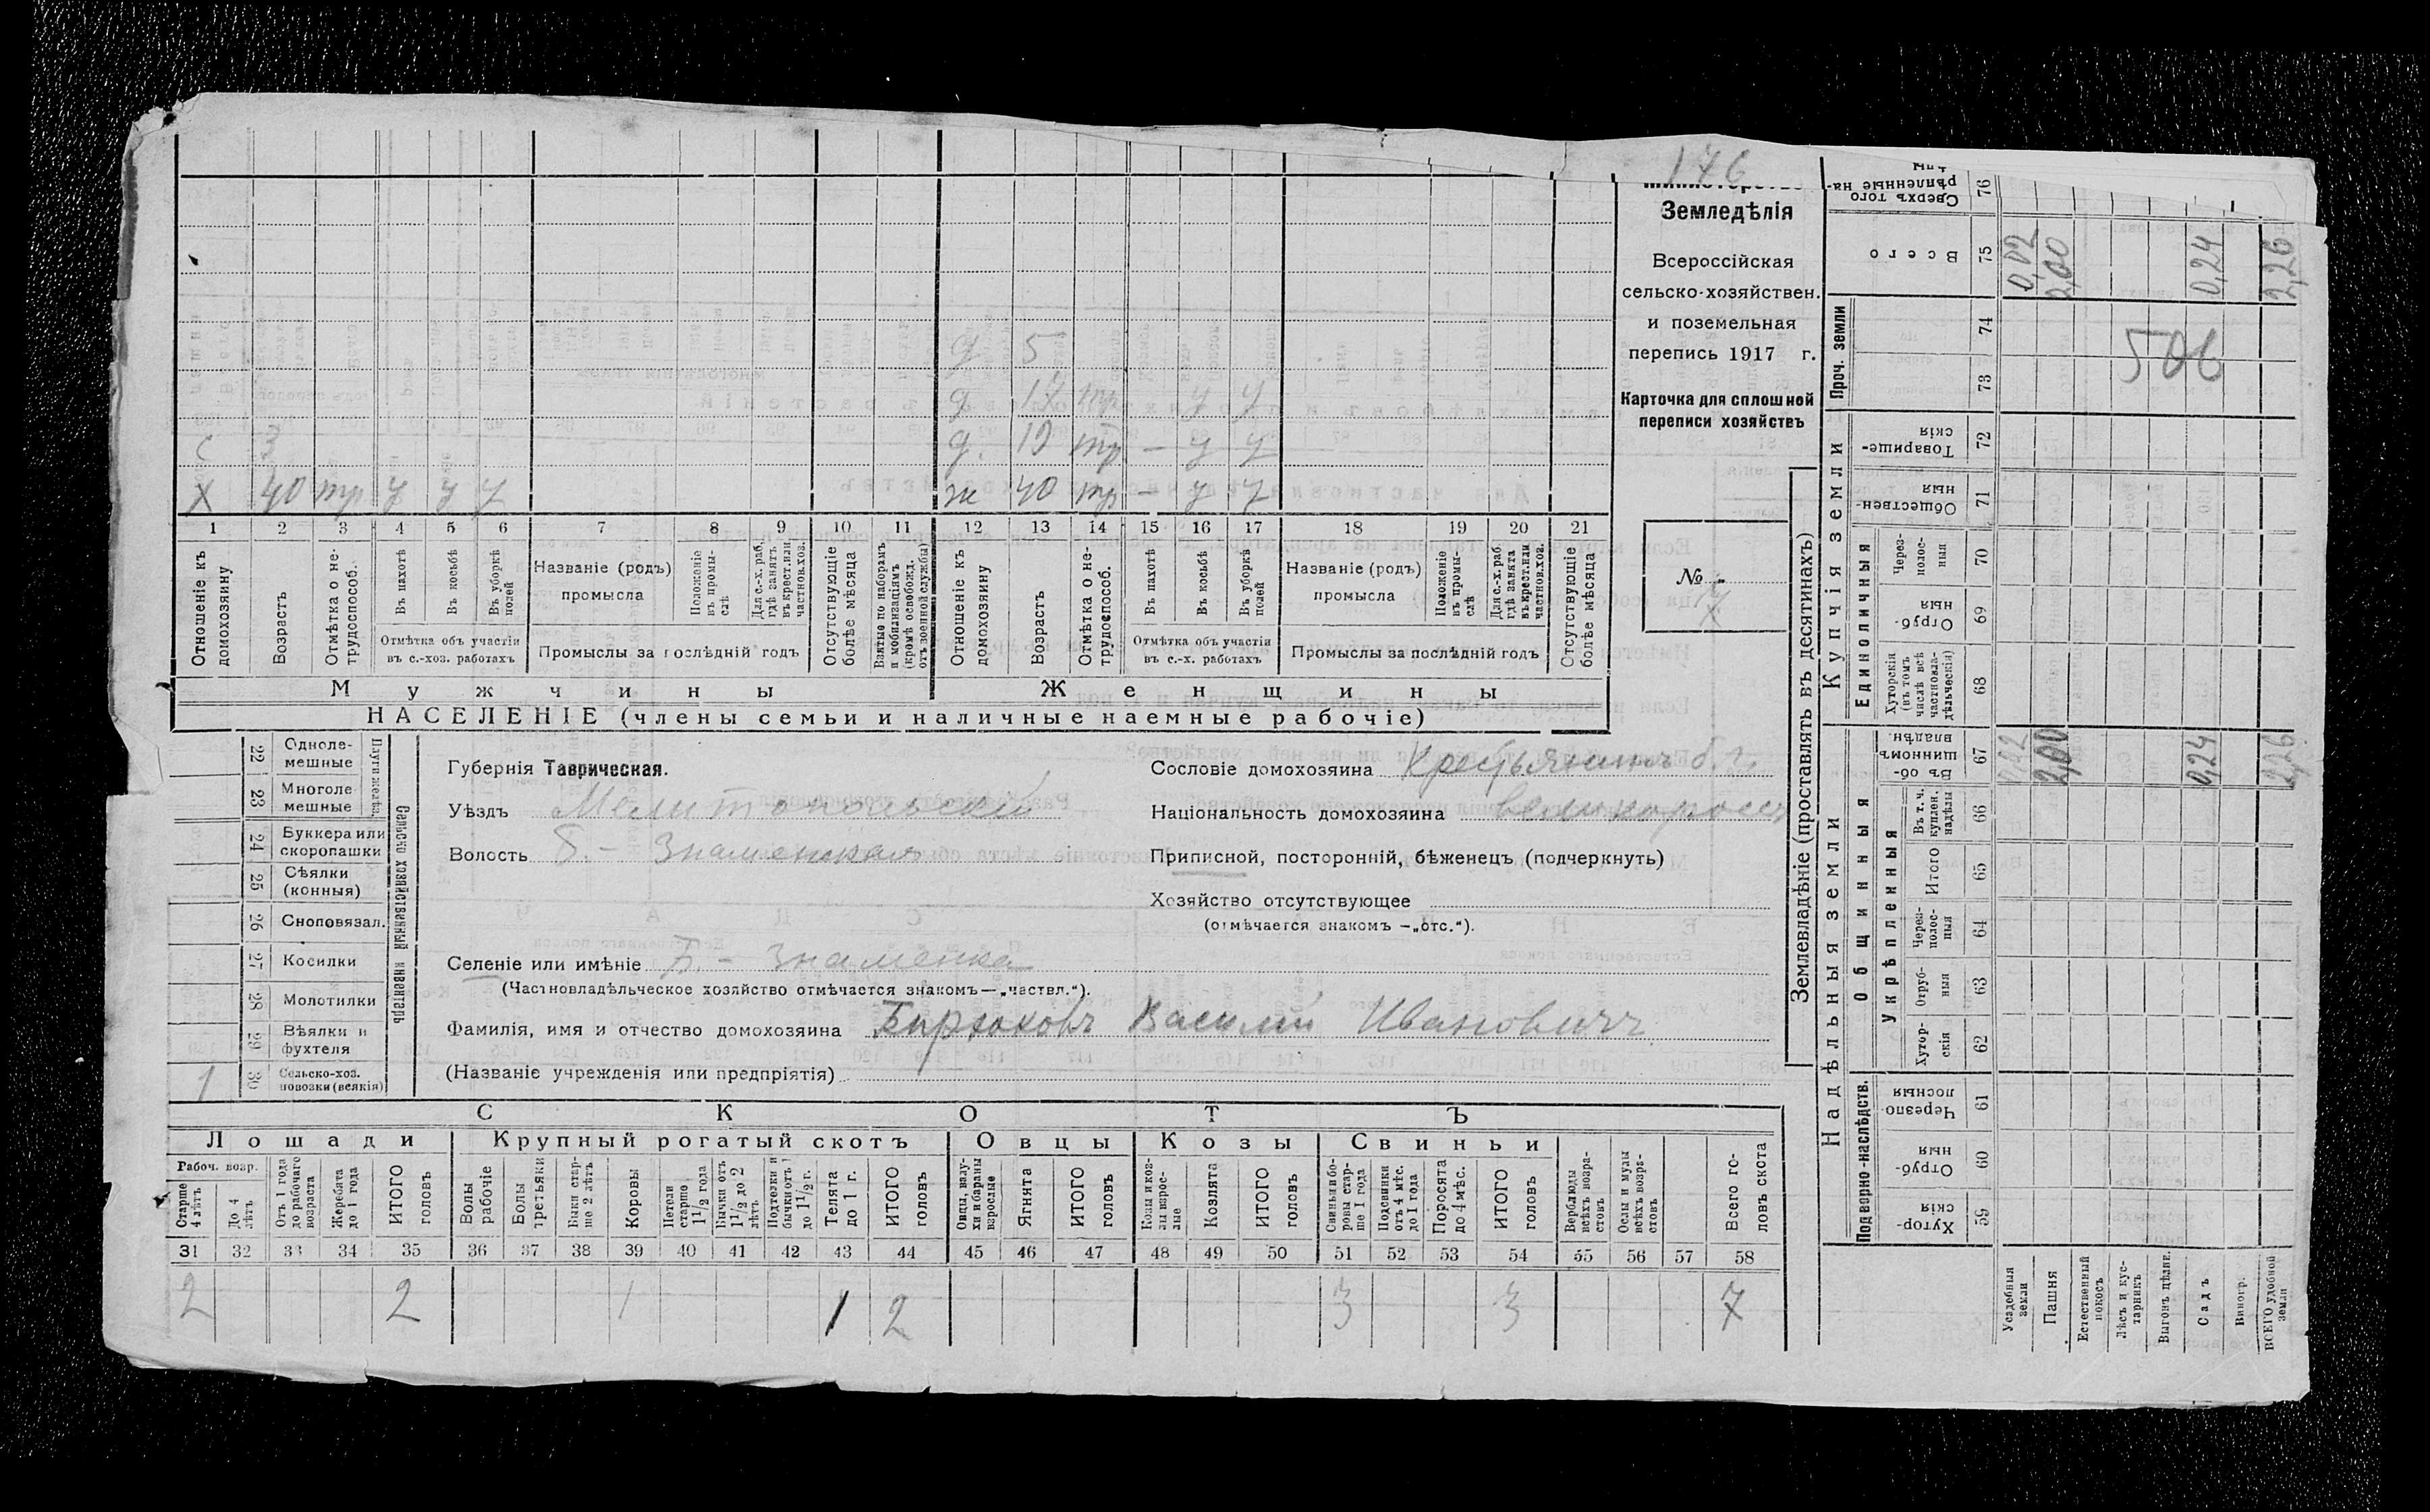 176
Земледѣлія
Всероссійская
сельско-хозяйствен.
и поземельная
перепись 1917 г.
Карточка для сплошной
переписи хозяйствъ
№
д 5
д 17 тр - у у
с 3 д. 19 тр - у у
х 40 тр у у у ж 40 тр - у у
1 2 3 4 5 6 7 8 9 10 11 12 13 14 15 16 17 18 19 20 21
Отношеніе къ домохозяину
Возрастъ
Отмѣтка о не-трудоспособ.
Въ пахотѣ
Въ косьбѣ
Въ уборкѣ полей
Отмѣтка объ участіи въ с.-хоз. работахъ
Названіе (родъ) промысла
Положеніе въ промы-слѣ
Для с.-х. раб. гдѣ занятъ въ крест. или частнов. хоз.
Промыслы за послѣдній годъ
Отсутствующіе болѣе мѣсяца
Взятые по наборамъ и мобилизаціямъ (кромѣ освобожд. отъ военной службы)
Отношеніе къ домохозяину
Возрастъ
Отмѣтка о не-трудоспособ.
Въ пахотѣ
Въ косьбѣ
Въ уборкѣ полей
Отмѣтка объ участіи въ с.-х. работахъ
Названіе (родъ) промысла
Положеніе въ промы-слѣ
Для с.-х. раб. гдѣ занята въ крест. или частнов. хоз.
Промыслы за послѣдній годъ
Отсутствующіе болѣе мѣсяца
Мужчины Женщины
НАСЕЛЕНІЕ (члены семьи и наличные наемные рабочіе)
Сельско хозяйственный инвентарь
Плуги желѣз.
22 Одноле-мешные
23 Многоле мешные
24 Буккера или скоропашки
25 Сѣялки (конныя)
26 Сноповязал.
27 Косилки
28 Молотилки
29 Вѣялки и фухтеля
1 30 Сельско-хоз. повозки (всякія)
Губернія Таврическая.
Уѣздъ Мелитопольскій
Волость Б.- Знаменская
Сословіе домохозяина Крестьянинъ б. г.
Національность домохозяина великороссъ
Приписной, посторонній, бѣженецъ (подчеркнуть)
Хозяйство отсутствующее
(отмѣчается знакомъ —„отс.“).
Селеніе или имѣніе Б. - Знаменка
(Частновладѣльческое хозяйство отмѣчается знакомъ—„частвл.“).
Фамилія, имя и отчество домохозяина Бирюковъ Василій Ивановичъ
(Названіе учрежденія или предпріятія)
СКОТЪ
Лошади Крупный рогатый скотъ Овцы Козы Свиньи
Рабоч. возр.
Старше 4 лѣтъ
До 4 лѣтъ
Отъ 1 года до рабочаго возраста
Жеребята до 1 года
ИТОГО головъ
Волы рабочіе
Волы третьяки
Быки стар-ше 2 лѣтъ
Коровы
Нетели старше 1 1/2 года
Бычки отъ 1 1/2 до 2 лѣтъ
Подтелки и бычки отъ 1 до 1 1/2 г.
Телята до 1 г.
ИТОГО головъ
Овцы, валу-хи и бараны взрослые
Ягнята
ИТОГО головъ
Козы и коз-лы взрос-лые
Козлята
ИТОГО головъ
Свиньи и бо-ровы стар-ше 1 года
Подсвинки отъ 4 мѣс. до 1 года
Поросята до 4 мѣс.
ИТОГО головъ
Верблюды всѣхъ возра-стовъ
Ослы и мулы всѣхъ возра-стовъ
Всего го-ловъ скота
31 32 33 34 35 36 37 38 39 40 41 42 43 44 45 46 47 48 49 50 51 52 53 54 55 56 57 58
2 2 1 1 2 3 3 7
Землевладѣніе (проставлять въ десятинахъ)
Надѣльныя земли Купчія земли Проч. земли
Подворно-наслѣдств. Общинныя Единоличныя
Укрѣпленныя
Сверхъ того 76
Всего 75 0,02 2,00 0,24 2,26
74
73
506
Товарище-скія 72
Обществен-ныя 71
Через-полос-ныя 70
Отруб-ныя 69
Хуторскія (въ томъ числѣ всѣ частновла-дѣльческія) 68
Въ об-щинномъ владѣн. 67 0,02 2,00 0,24 2,26
Въ т. ч. куплен. надѣлы 66
Итого 65
Через-полос-ныя 64
Отруб-ныя 63
Хутор-скія 62
Черезпо-лосныя 61
Отруб-ныя 60
Хутор-скія 59
Усадебныя земли
Пашня
Естественный покосъ
Лѣсъ и кус-тарникъ
Выгонъ цѣлин.
Садъ
Виногр.
ВСЕГО удобной земли